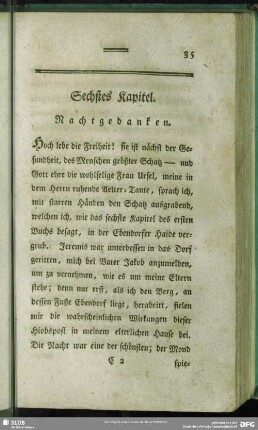 35
Sechstes Kapitel.
Nachtgedanken.
Hoch lebe die Freiheit! sie ist nächst der Ge-
sundheit, des Menschen größter Schatz — und
Gott ehre die wohlselige Frau Ursel, meine in
dem Herrn ruhende Aelter-Tante, sprach ich,
mit starren Händen den Schatz ausgrabend,
welchen ich, wie das sechste Kapitel des ersten
Buchs besagt, in der Ebendorfer Haide ver-
grub. Jeremis war unterdessen in das Dorf
geritten, mich bei Vater Jakob anzumelden,
um zu vernehmen, wie es um meine Eltern
stehe; denn nur erst, als ich den Berg, an
dessen Fuße Ebendorf liegt, herabritt, fielen
mir die wahrscheinlichen Wirkungen dieser
Hiobspost in meinem elterlichen Hause bei.
Die Nacht war eine der schönsten; der Mond
C 2
spie-
SLUB
DFG